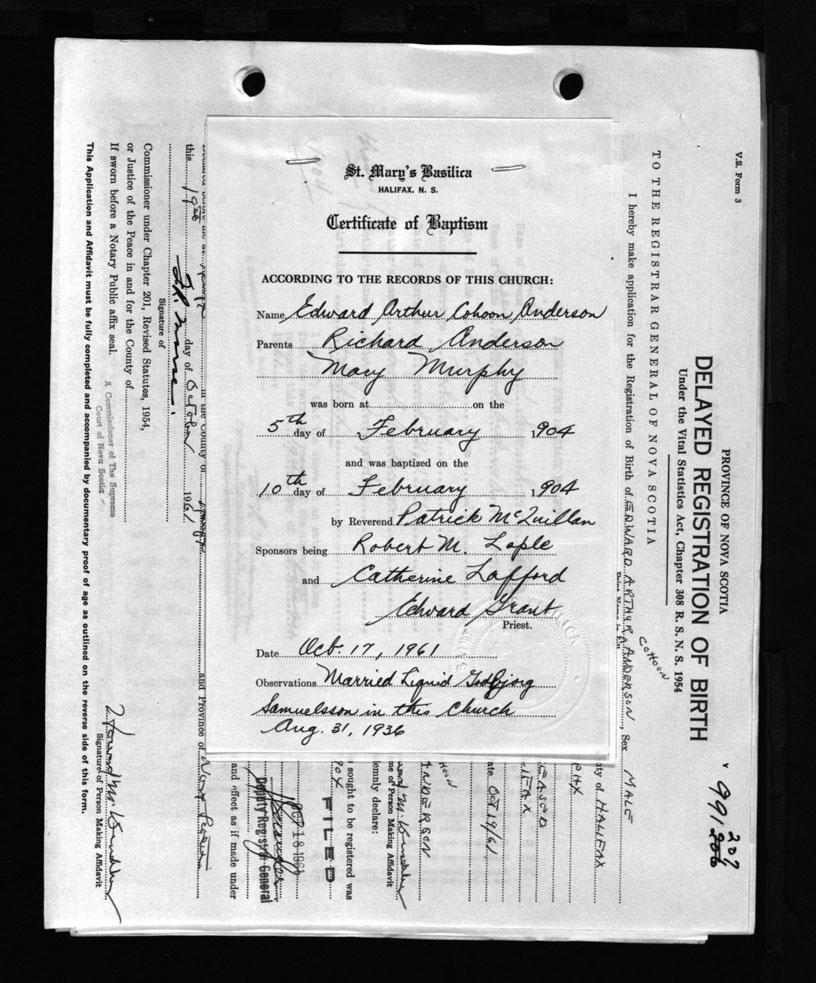 St. Mary's Basilica
HALIFAX, N. S.
Certificate of Baptism
ACCORDING TO THE RECORDS OF THIS CHURCH:
Name Edward Arthur Cohoon Anderson
Parents Richard Anderson
Mary Murphy
was born at on the
5th day of February 1904
and was baptized on the
10th day of February 1904
by Reverend Patrick McQuillan
Sponsors being Robert M. Lople
and Catherine Lafford
Edward Grant
Priest.
Date Oct. 17, 1961
Observations Married Liguid Godbjorg
Samuelsson in this Church
Aug. 31, 1936
V.S. Form 3
PROVINCE OF NOVA SCOTIA
DELAYED REGISTRATION OF BIRTH
Under the Vital Statistics Act, Chapter 308 R. S. N. S. 1954
991 207
TO THE REGISTRAR GENERAL OF NOVA SCOTIA
COHOON
I hereby make application for the Registration of Birth of EDWARD ARTHUR ANDERSON, Sex MALE
ity of HALIFAX
EASED
ate OCT 19/61
ANDERSON
me of Person Making Affidavit
emnly declare:
sought to be registered was
904
FILED
and effect as if made under
Deputy Registrar General
in the County of
and Province of Nova Scotia
this 19th day of October 1961
Signature of
Commissioner under Chapter 201, Revised Statutes, 1954,
or Justice of the Peace in and for the County of
If sworn before a Notary Public affix seal.
A Commissioner of The Supreme
Court of Nova Scotia
Signature of Person Making Affidavit
This Application and Affidavit must be fully completed and accompanied by documentary proof of age as outlined on the reverse side of this form.